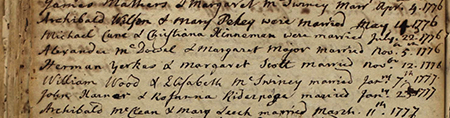 James Mathers & Margaret McSwiney Marr Apr. 4. 1776
Archibald Wilson & Mary were married May 14. 1776
Michael Cane & Christiana Hinneman were married July. 22. 1776
Alexander McDowel & Margaret Major married Nov. 5th 1776
Herman Yerkes & Margaret Scott married Novr 12. 1776
William Wood & Elisabeth McSwiney married Janry 7th 1777.
John & Rosanna Kiderpage married Janr 1777
Archibald McClean & Mary Leech married March. 11th 1777.